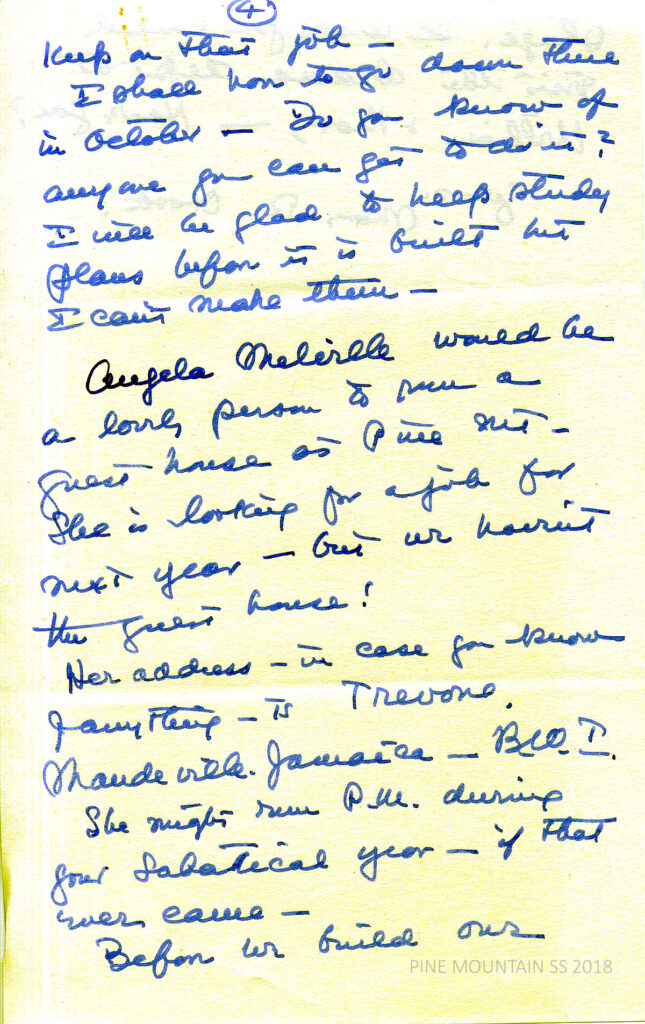 4
Keep on that job –
I shall have to go down there
in October – Do you know of
anyone you can get to do it?
I will be glad to help study
plans before it is built but
I can't make them –
Angela Melville would be
a lovely person to run a
guest house at Pine Mt –
She is looking for a job for
next year – but we haven't
the guest house!
Her address – in case you know
of anything – is Trevone,
Mandeville. Jamaica – B.W.I.
She might run P.M. during
your Sabatical year – if that
ever came –
Before we build our
PINE MOUNTAIN SS 2018